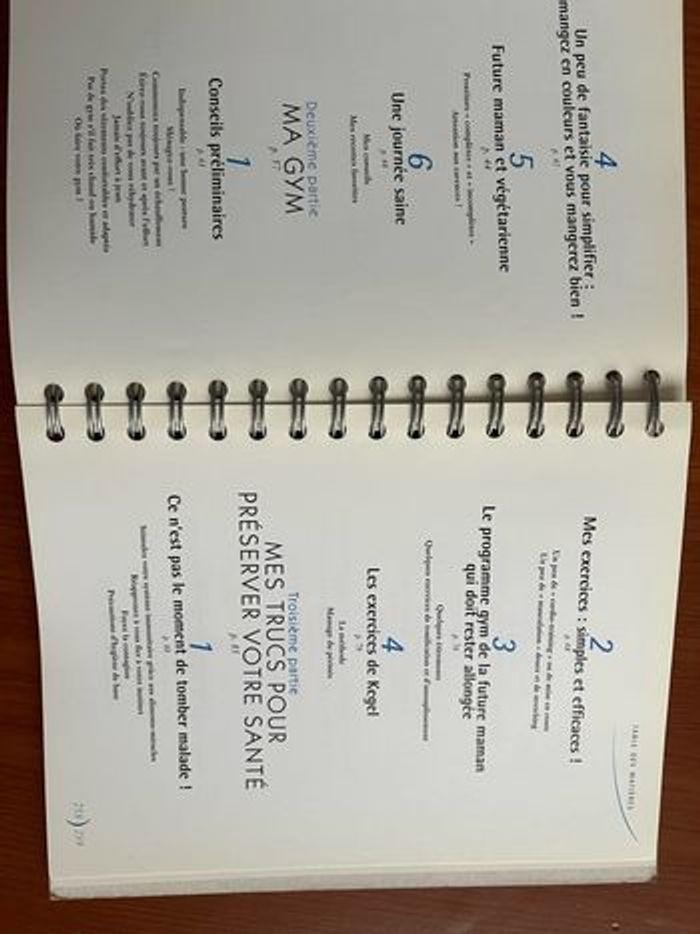 4
Un peu de fantaisie pour simplifier :
mangez en couleurs et vous mangerez bien !
5
Future maman et végétarienne
p. 44
Protéines « complètes » et « incomplètes »
Attention aux carences !
6
Une journée saine
Mes conseils
Mes recettes favorites
Deuxième partie
MA GYM
p. 57
1
Conseils préliminaires
p. 61
Indispensable : une bonne posture
Ménagez-vous !
Commencez toujours par un échauffement
Étirez-vous toujours avant et après l'effort
N'oubliez pas de vous réhydrater
Jamais d'effort à jeun
Portez des vêtements confortables et adaptés
Pas de gym s'il fait très chaud ou humide
Où faire votre gym ?
TABLE DES MATIÈRES
2
Mes exercices : simples et efficaces !
p. 68
Un peu de « cardio-training » ou de mise en route
Un peu de « musculation » douce et de stretching
3
Le programme gym de la future maman
qui doit rester allongée
Quelques étirements
Quelques exercices de tonification et d'assouplissement
4
Les exercices de Kegel
p. 79
La méthode
Massage du périnée
Troisième partie
MES TRUCS POUR
PRÉSERVER VOTRE SANTÉ
p. 85
1
Ce n'est pas le moment de tomber malade !
Stimulez votre système immunitaire grâce aux aliments-miracles
Réapprenez à vous fier à votre instinct
Fuyez la contagion
Précautions d'hygiène de base
258 259